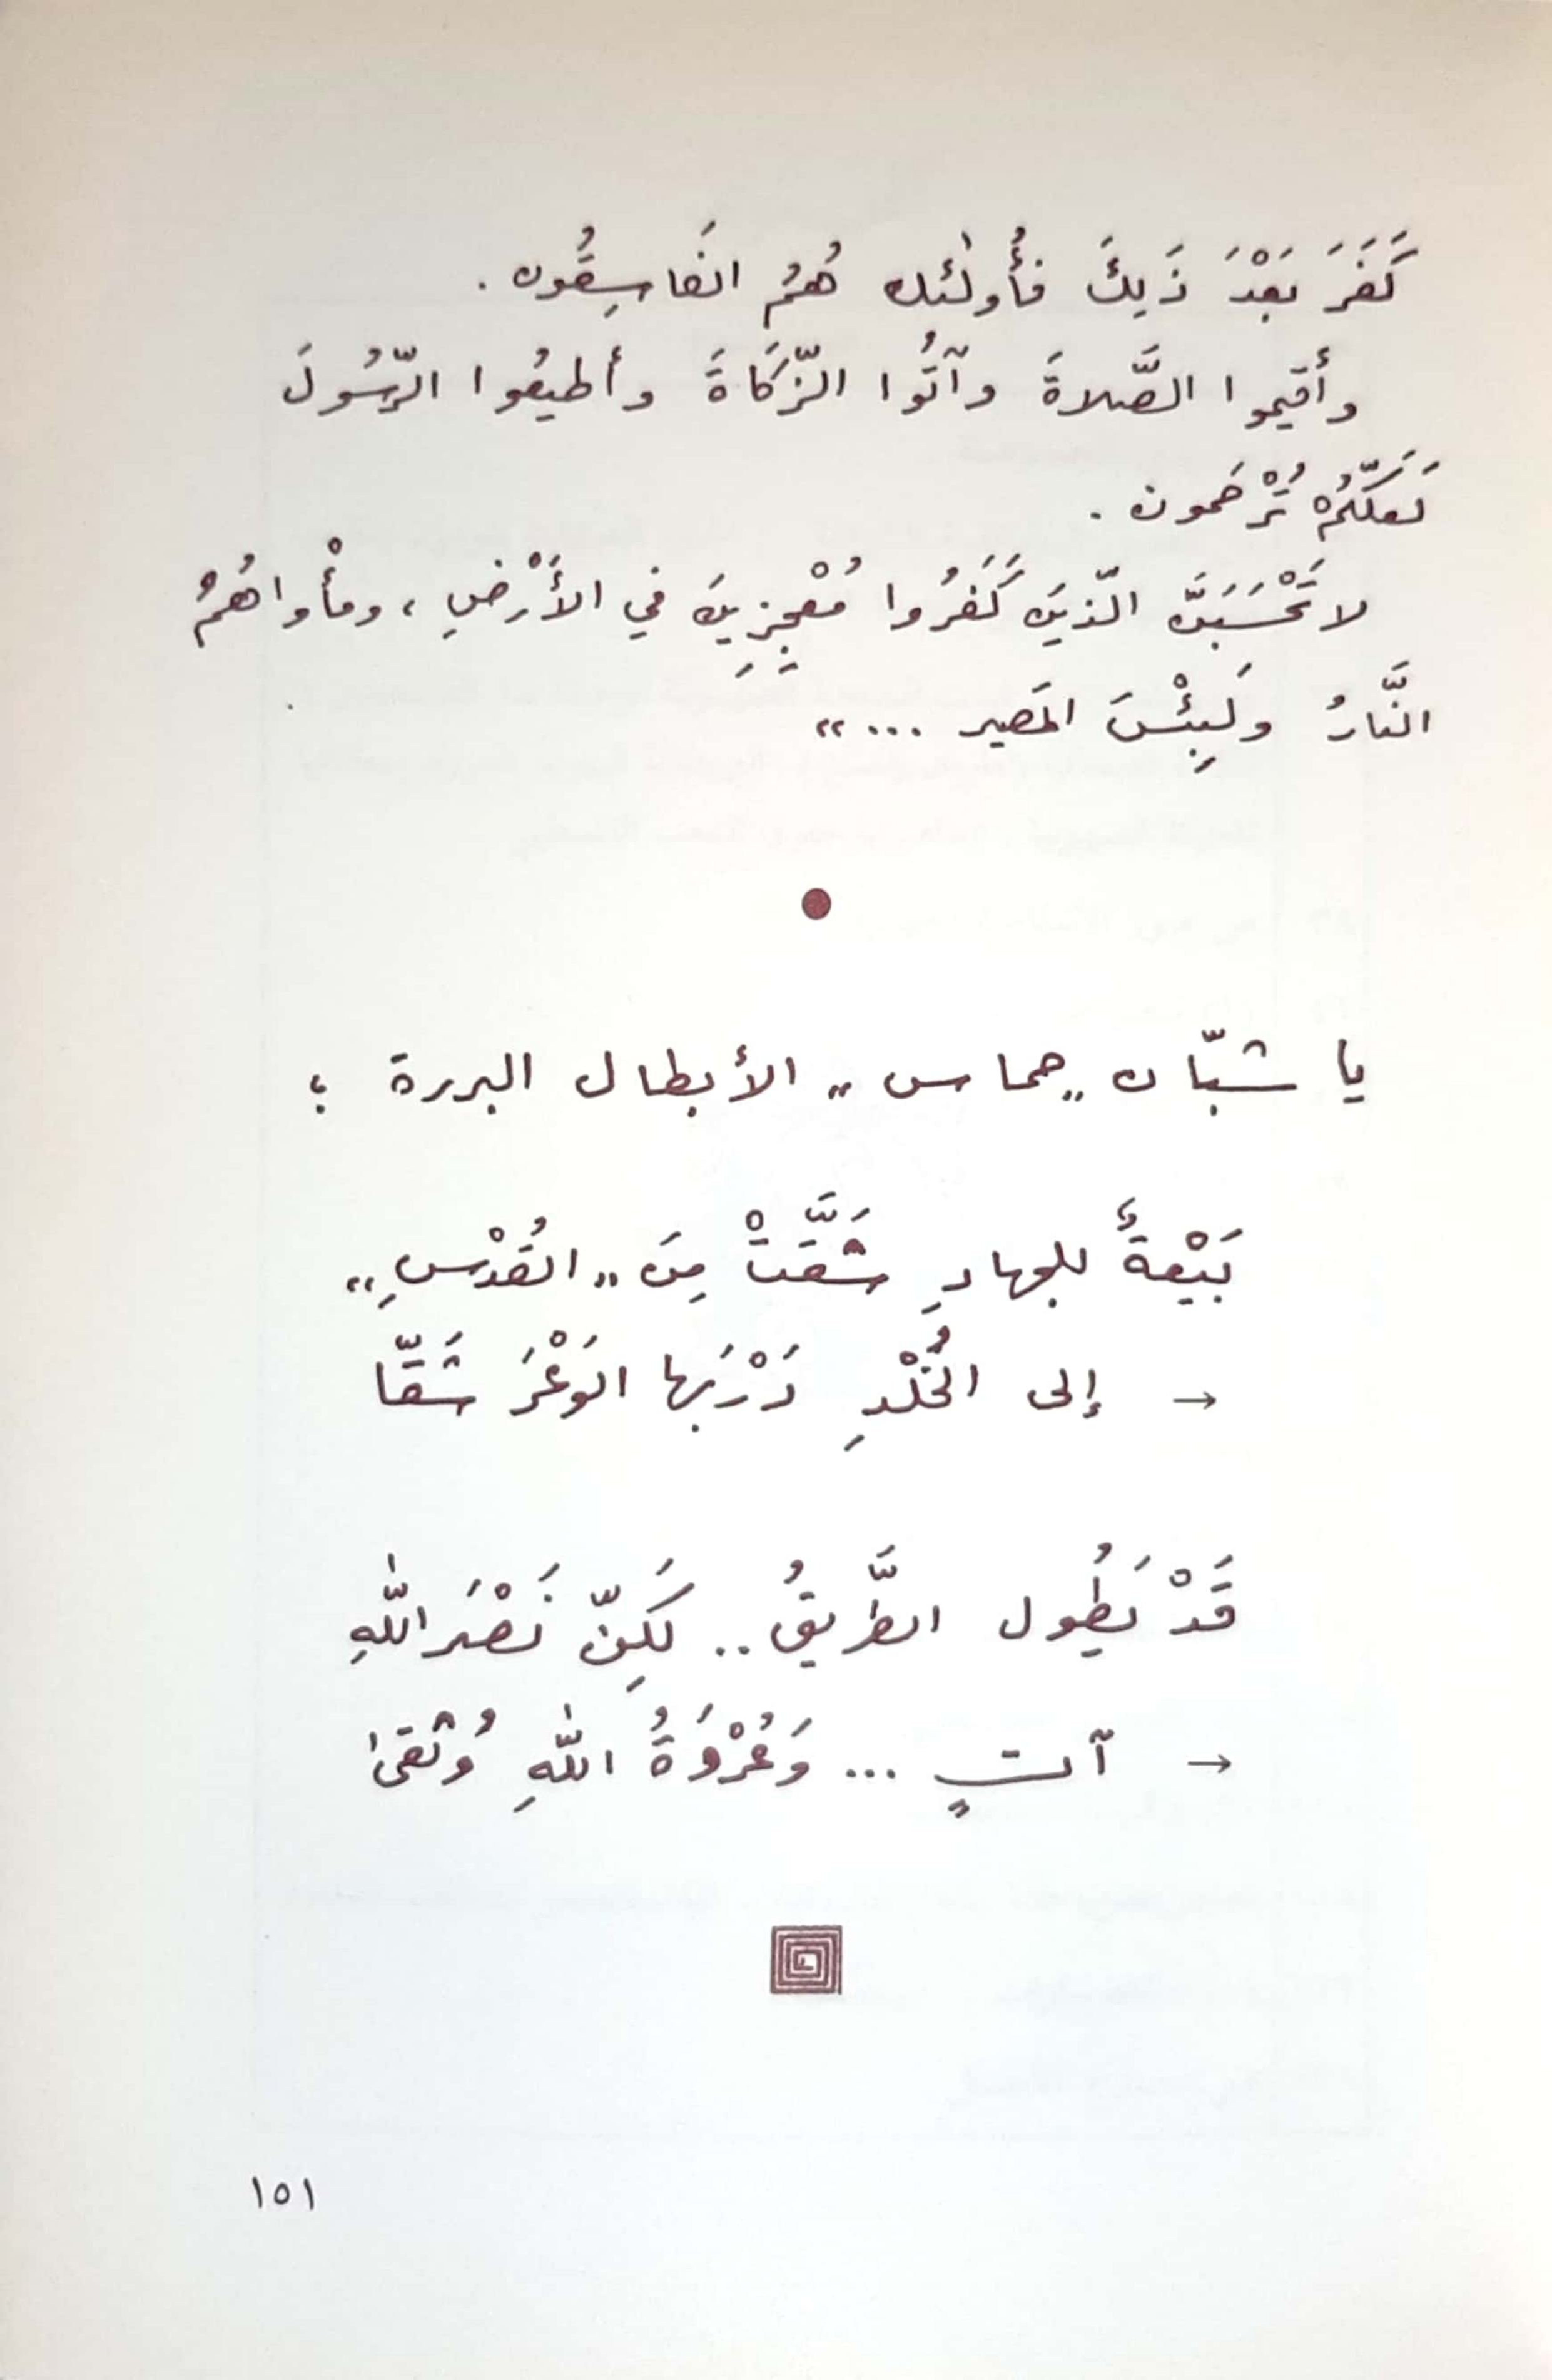 كَفَرَ بَعْدَ ذَلِكَ فأُولٰئك هُمُ الفَاسِقُون .
وأقيموا الصَّلاةَ وآتُوا الزّكَاةَ وأطيعُوا الرّسُولَ
لَعَلّكُمْ تُرْحَمون .
لا تَحْسَبَنَّ الّذينَ كَفَرُوا مُعْجِزِينَ في الأَرْضِ ، ومأْواهُمُ
النَّارُ ولَبِئْسَ المَصير ... »
يا شبّان „حماس„ الأبطال البررة ؛
بَيْعةٌ للجهادِ شَقَّتْ مِنَ „القُدْسِ„
→ إلى الخُلْدِ دَرْبَها الوَعْرَ شَقّا
قَدْ يَطُول الطَّريقُ .. لَكِنّ نَصْرَ اللّٰهِ
→ آتٍ ... وَعُرْوَةُ اللّٰهِ وُثْقىٰ
١٥١